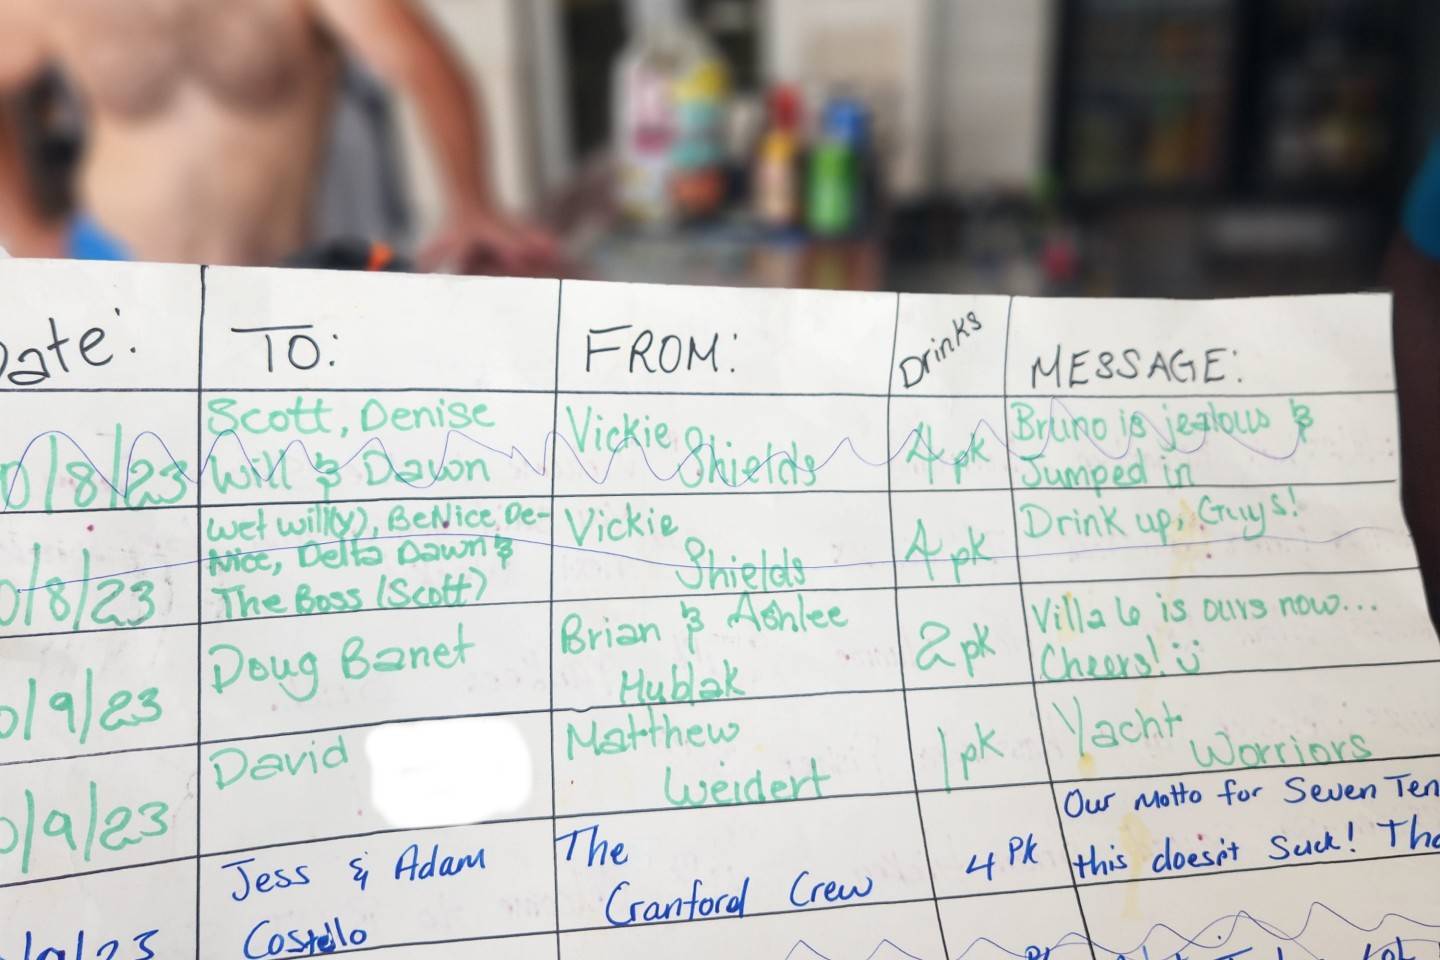 Date:
TO:
FROM:
Drinks
MESSAGE:
0/8/23
Scott, Denise
Will & Dawn
Vickie
Shields
4pk
Bruno is jealous &
Jumped in
0/8/23
Wet will(y), BeNice De-
Nice, Delta Dawn &
The Boss (Scott)
Vickie
Shields
4pk
Drink up, Guys!
0/9/23
Doug Banet
Brian & Ashlee
Hublak
2pk
Villa 6 is ours now...
Cheers!
0/9/23
David
Matthew
Weidert
1pk
Yacht
Worriors
/9/23
Jess & Adam
Costello
The
Cranford Crew
4 Pk
Our Motto for Seven Ten
this doesn't Suck! Tha